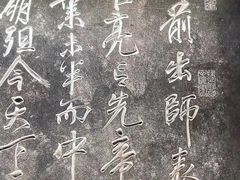 前出師表
臣亮言先帝
業未半而中
崩殂今天下